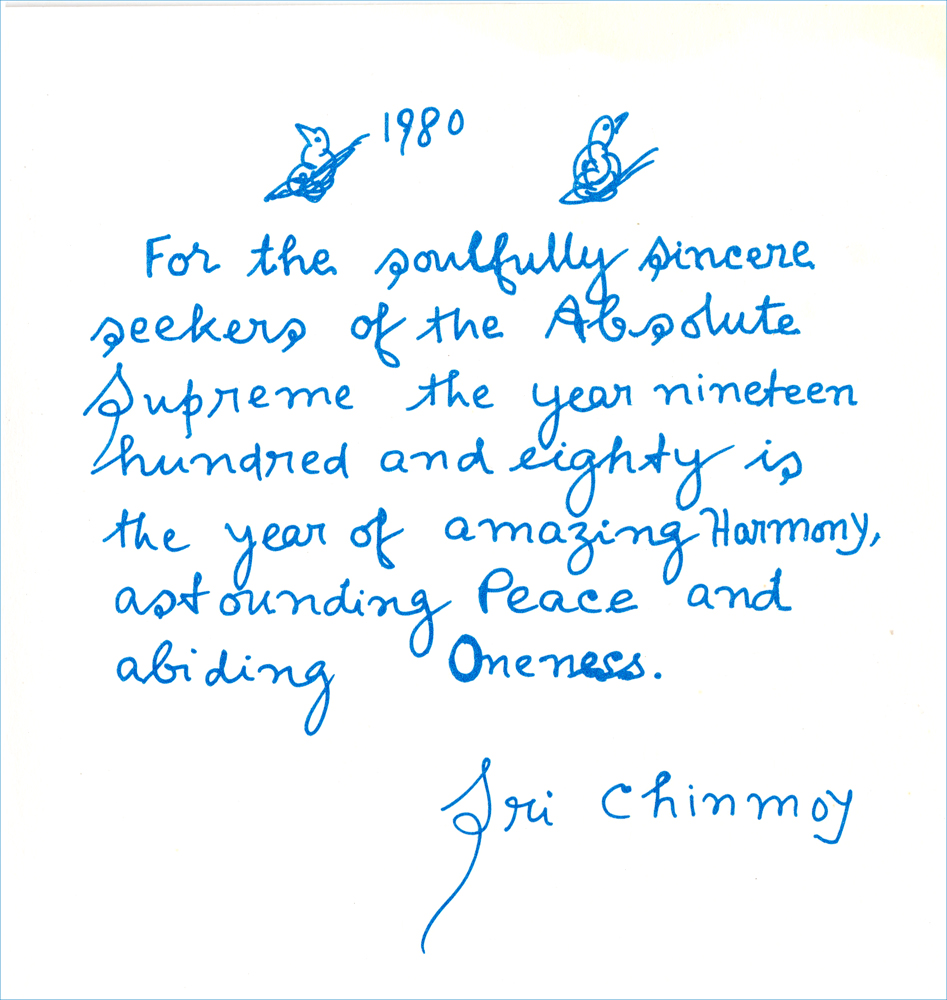 1980
For the soulfully sincere
seekers of the Absolute
Supreme the year nineteen
hundred and eighty is
the year of amazing Harmony,
astounding Peace and
abiding Oneness.
Sri Chinmoy